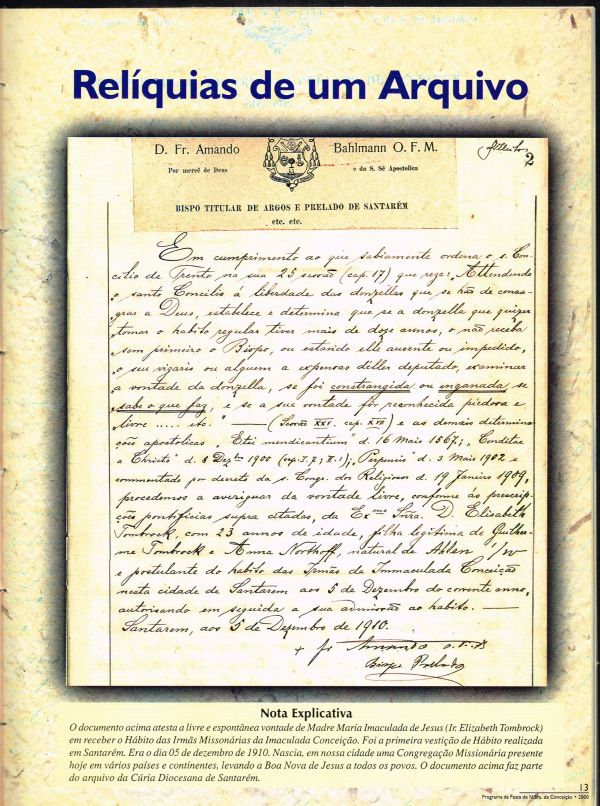 Relíquias de um Arquivo
D. Fr. Amando Bahlmann O. F. M.
Por mercê de Deus e da S. Sé Apostolica
2
BISPO TITULAR DE ARGOS E PRELADO DE SANTARÉM
etc. etc.
Em cumprimento ao que sabiamente ordena o s. Con-
cilio de Trento na sua 25 sessão (cap. 17) que reza: „Attendendo
o santo Concilio á liberdade das donzellas que se hão de consa-
grar a Deus, estabelece e determina que se a donzella que quizer
tomar o habito regular tiver mais de doze annos, o não receba
sem primeiro o Bispo, ou estando elle ausente ou impedido,
o seu vigario ou alguem a expensas delles deputado, examinar
a vontade da donzella, se foi constrangida ou enganada, se
sabe o que faz, e se a sua vontade fôr reconhecida piedosa e
livre ..... etc. " — (Sessão XXV. cap. XVII) e as demais determina-
ções apostolicas „Etsi mendicantium" d. 16 Maio 1567; „Conditae
a Christo" d. 8 Dezbr 1900 (cap. I. 7; II. 1); „Perpensis" d. 3 Maio 1902 e
commentado por decreto da s. Congr. dos Religiosos d. 19 Janeiro 1909,
procedemos a averiguar da vontade livre, conforme ás prescrip-
ções pontificias supra citadas, da Exma Snra. D. Elisabeth
Tombrock, com 23 annos de idade, filha legitima de Guilher-
me Tombrock e Anna Northoff, natural de Ahlen i/w
e postulante do habito das Irmãs da Immaculada Conceição
nesta cidade de Santarem aos 5 de Dezembro do corrente anno,
autorisando em seguida a sua admissão ao habito. —
Santarem, aos 5 de Dezembro de 1910.
+ fr Amando o.f.m.
Bispo Prelado
Nota Explicativa
O documento acima atesta a livre e espontânea vontade de Madre Maria Imaculada de Jesus (Ir. Elizabeth Tombrock)
em receber o Hábito das Irmãs Missonárias da Imaculada Conceição. Foi a primeira vestição de Hábito realizada
em Santarém. Era o dia 05 de dezembro de 1910. Nascia, em nossa cidade uma Congregação Missionária presente
hoje em vários países e continentes, levando a Boa Nova de Jesus a todos os povos. O documento acima faz parte
do arquivo da Cúria Diocesana de Santarém.
13
Programa da Festa de N.Sra. da Conceição • 2000